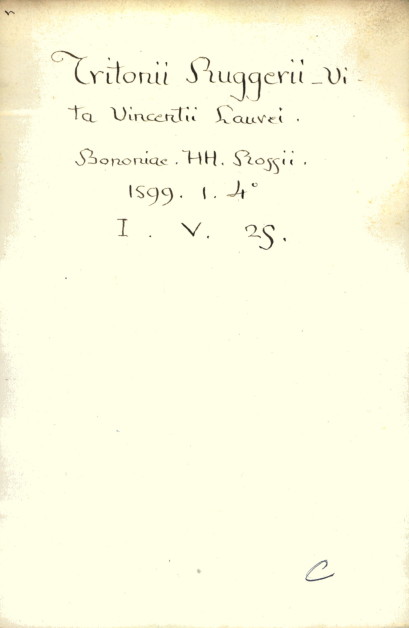 Tritonii Ruggerii _ Vi
ta Vincentii Laurei .
Bononiae . HH. Rossii .
1599 . 1 . 4°
I . V. 25.
C